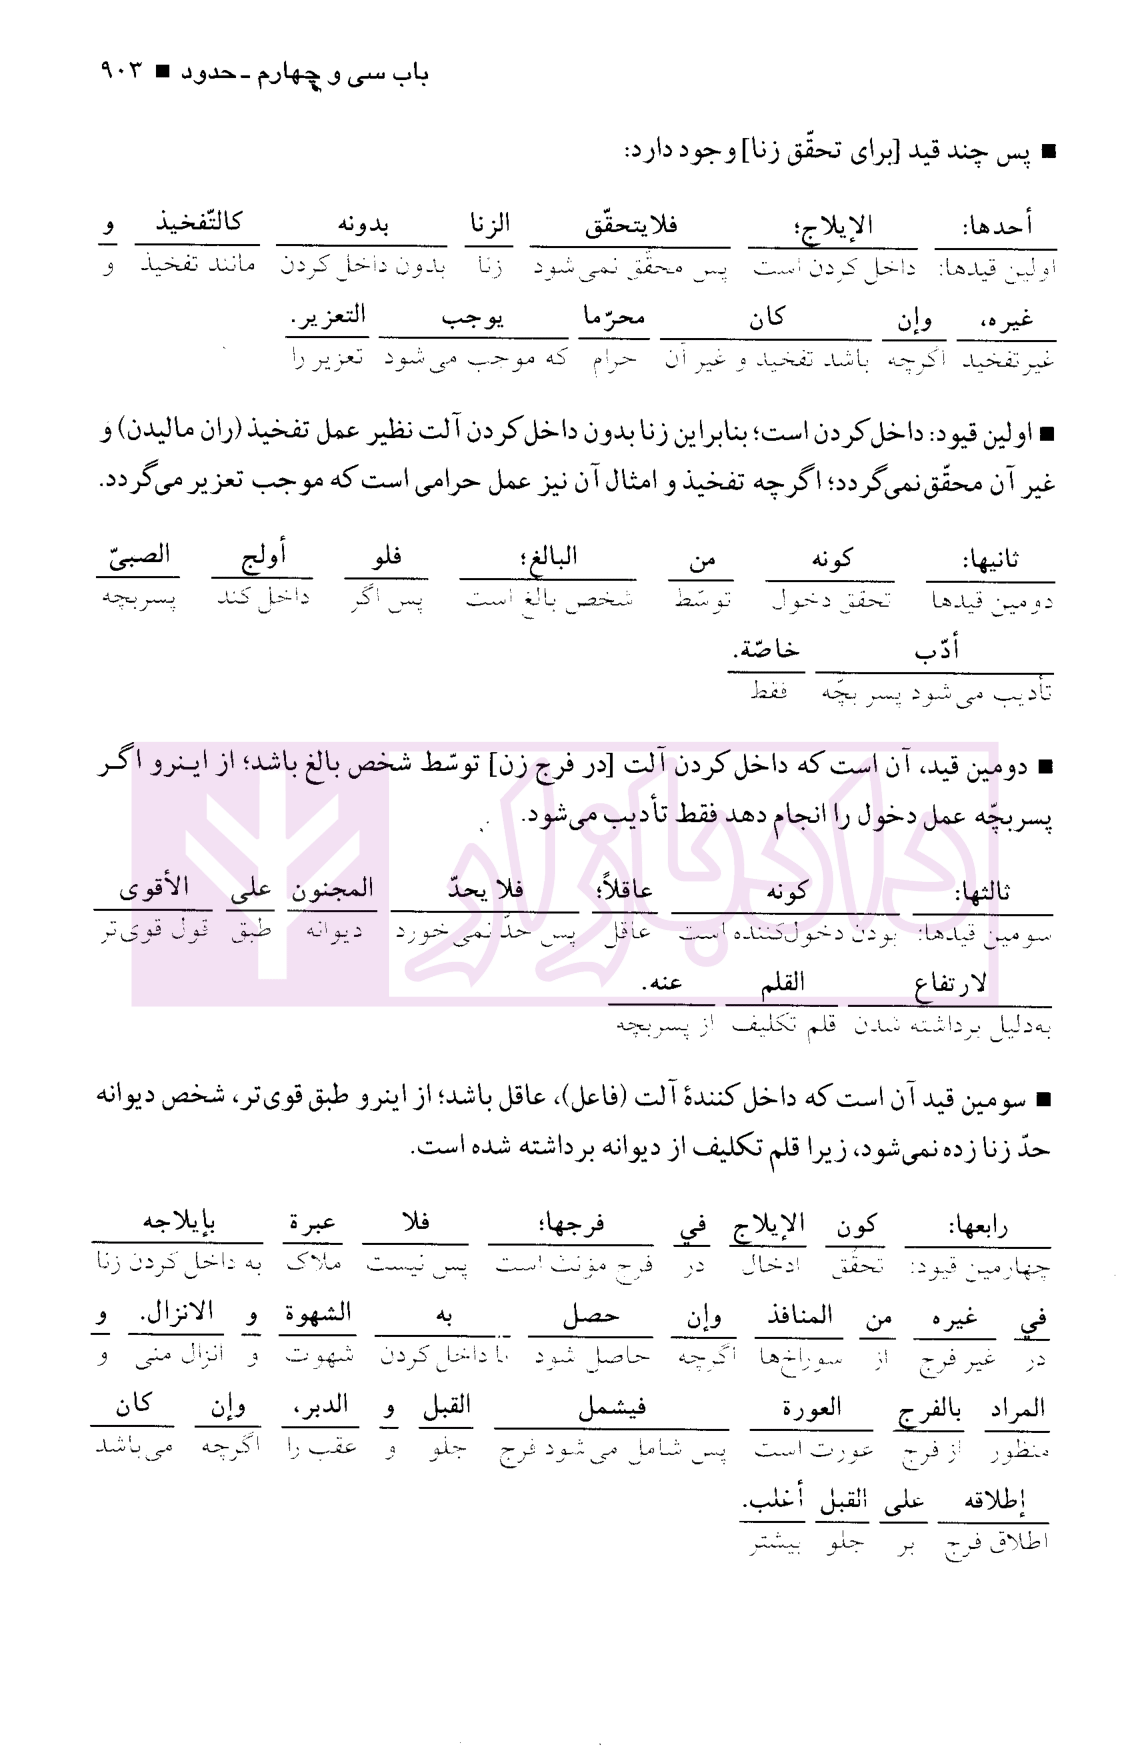 باب سی و چهارم ـ حدود ■ ۹۰۳
■ پس چند قید [برای تحقّق زنا] وجود دارد:
أحدها: الإیلاج؛ فلایتحقّق الزنا بدونه کالتّفخیذ و
اولین قیدها: داخل کردن است پس محقّق نمی‌شود زنا بدون داخل کردن مانند تفخیذ و
غیره، وإن کان محرّما یوجب التعزیر.
غیر تفخید اگرچه باشد تفخید و غیر آن حرام که موجب می‌شود تعزیر را
■ اولین قیود: داخل کردن است؛ بنابراین زنا بدون داخل کردن آلت نظیر عمل تفخیذ (ران مالیدن) و
غیر آن محقّق نمی‌گردد؛ اگرچه تفخیذ و امثال آن نیز عمل حرامی است که موجب تعزیر می‌گردد.
ثانیها: کونه من البالغ؛ فلو أولج الصبیّ
دومین قیدها تحقق دخول توسّط شخص بالغ است پس اگر داخل کند پسربچه
أدّب خاصّة.
تأدیب می‌شود پسر بچّه فقط
■ دومین قید، آن است که داخل کردن آلت [در فرج زن] توسّط شخص بالغ باشد؛ از اینرو اگر
پسربچّه عمل دخول را انجام دهد فقط تأدیب می‌شود.
دادبازار
ثالثها: کونه عاقلاً؛ فلا یحدّ المجنون علی الأقوی
سومین قیدها: بودن دخول‌کننده است عاقل پس حدّ نمی‌خورد دیوانه طبق قول قوی‌تر
لارتفاع القلم عنه.
به‌دلیل برداشته شدن قلم تکلیف از پسربچه
■ سومین قید آن است که داخل کنندهٔ آلت (فاعل)، عاقل باشد؛ از اینرو طبق قوی‌تر، شخص دیوانه
حدّ زنا زده نمی‌شود، زیرا قلم تکلیف از دیوانه برداشته شده است.
رابعها: کون الإیلاج في فرجها؛ فلا عبرة بإیلاجه
چهارمین قیود: تحقّق ادخال در فرج مؤنث است پس نیست ملاک به داخل کردن زنا
في غیره من المنافذ وإن حصل به الشهوة و الانزال. و
در غیر فرج از سوراخ‌ها اگرچه حاصل شود با داخل کردن شهوت و انزال منی و
المراد بالفرج العورة فیشمل القبل و الدبر، وإن کان
منظور از فرج عورت است پس شامل می‌شود فرج جلو و عقب را اگرچه می‌باشد
إطلاقه علی القبل أغلب.
اطلاق فرج بر جلو بیشتر